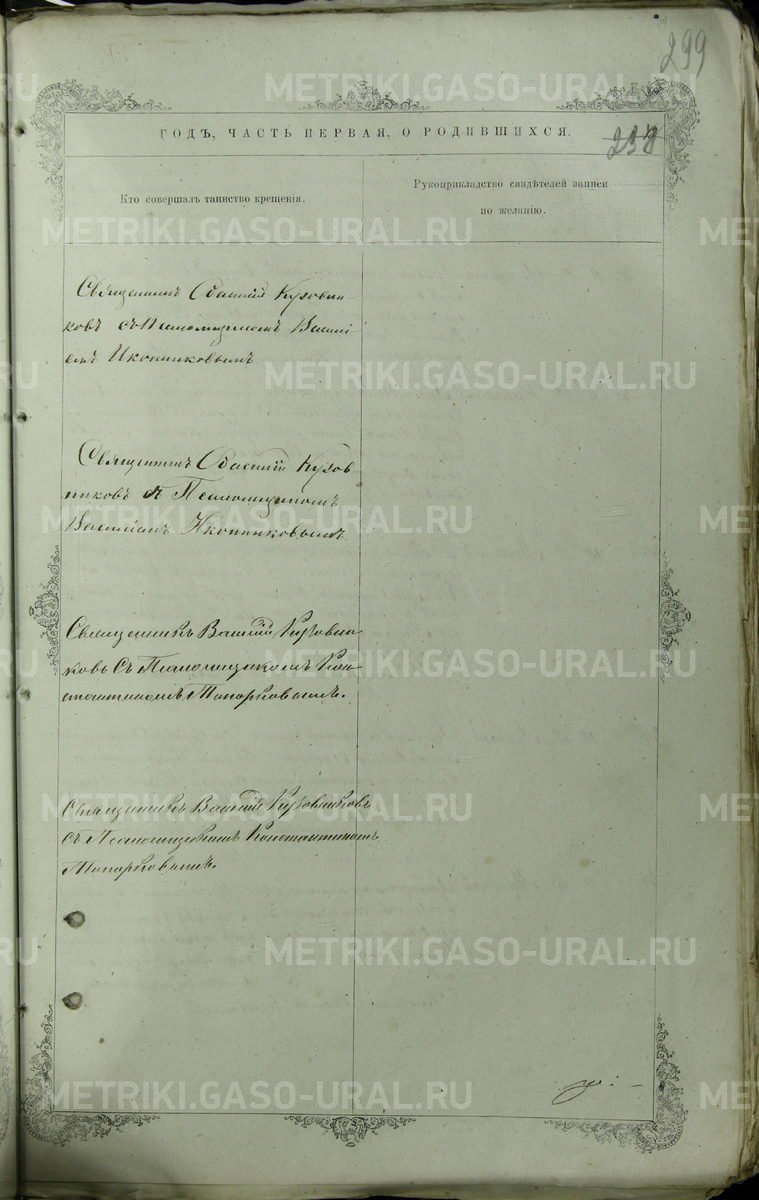 299
ГОДЪ, ЧАСТЬ ПЕРВАЯ, О РОДИВШИХСЯ.
238
Кто совершалъ таинство крещенія.
Рукоприкладство свидѣтелей записи
по желанію.
Священникъ Василій Кузовни-
ковъ съ Псаломщикомъ Васили
емъ Иконниковымъ
Священникъ Василій Кузов
никовъ съ Псаломщикомъ
Василіемъ Иконниковымъ
Священникъ Василій Кузовни
ковъ съ Псаломщикомъ Кон
стантиномъ Топорковымъ.
Священникъ Василій Кузовниковъ
съ Псаломщикомъ Константиномъ
Топорковымъ.
METRIKI.GASO-URAL.RU